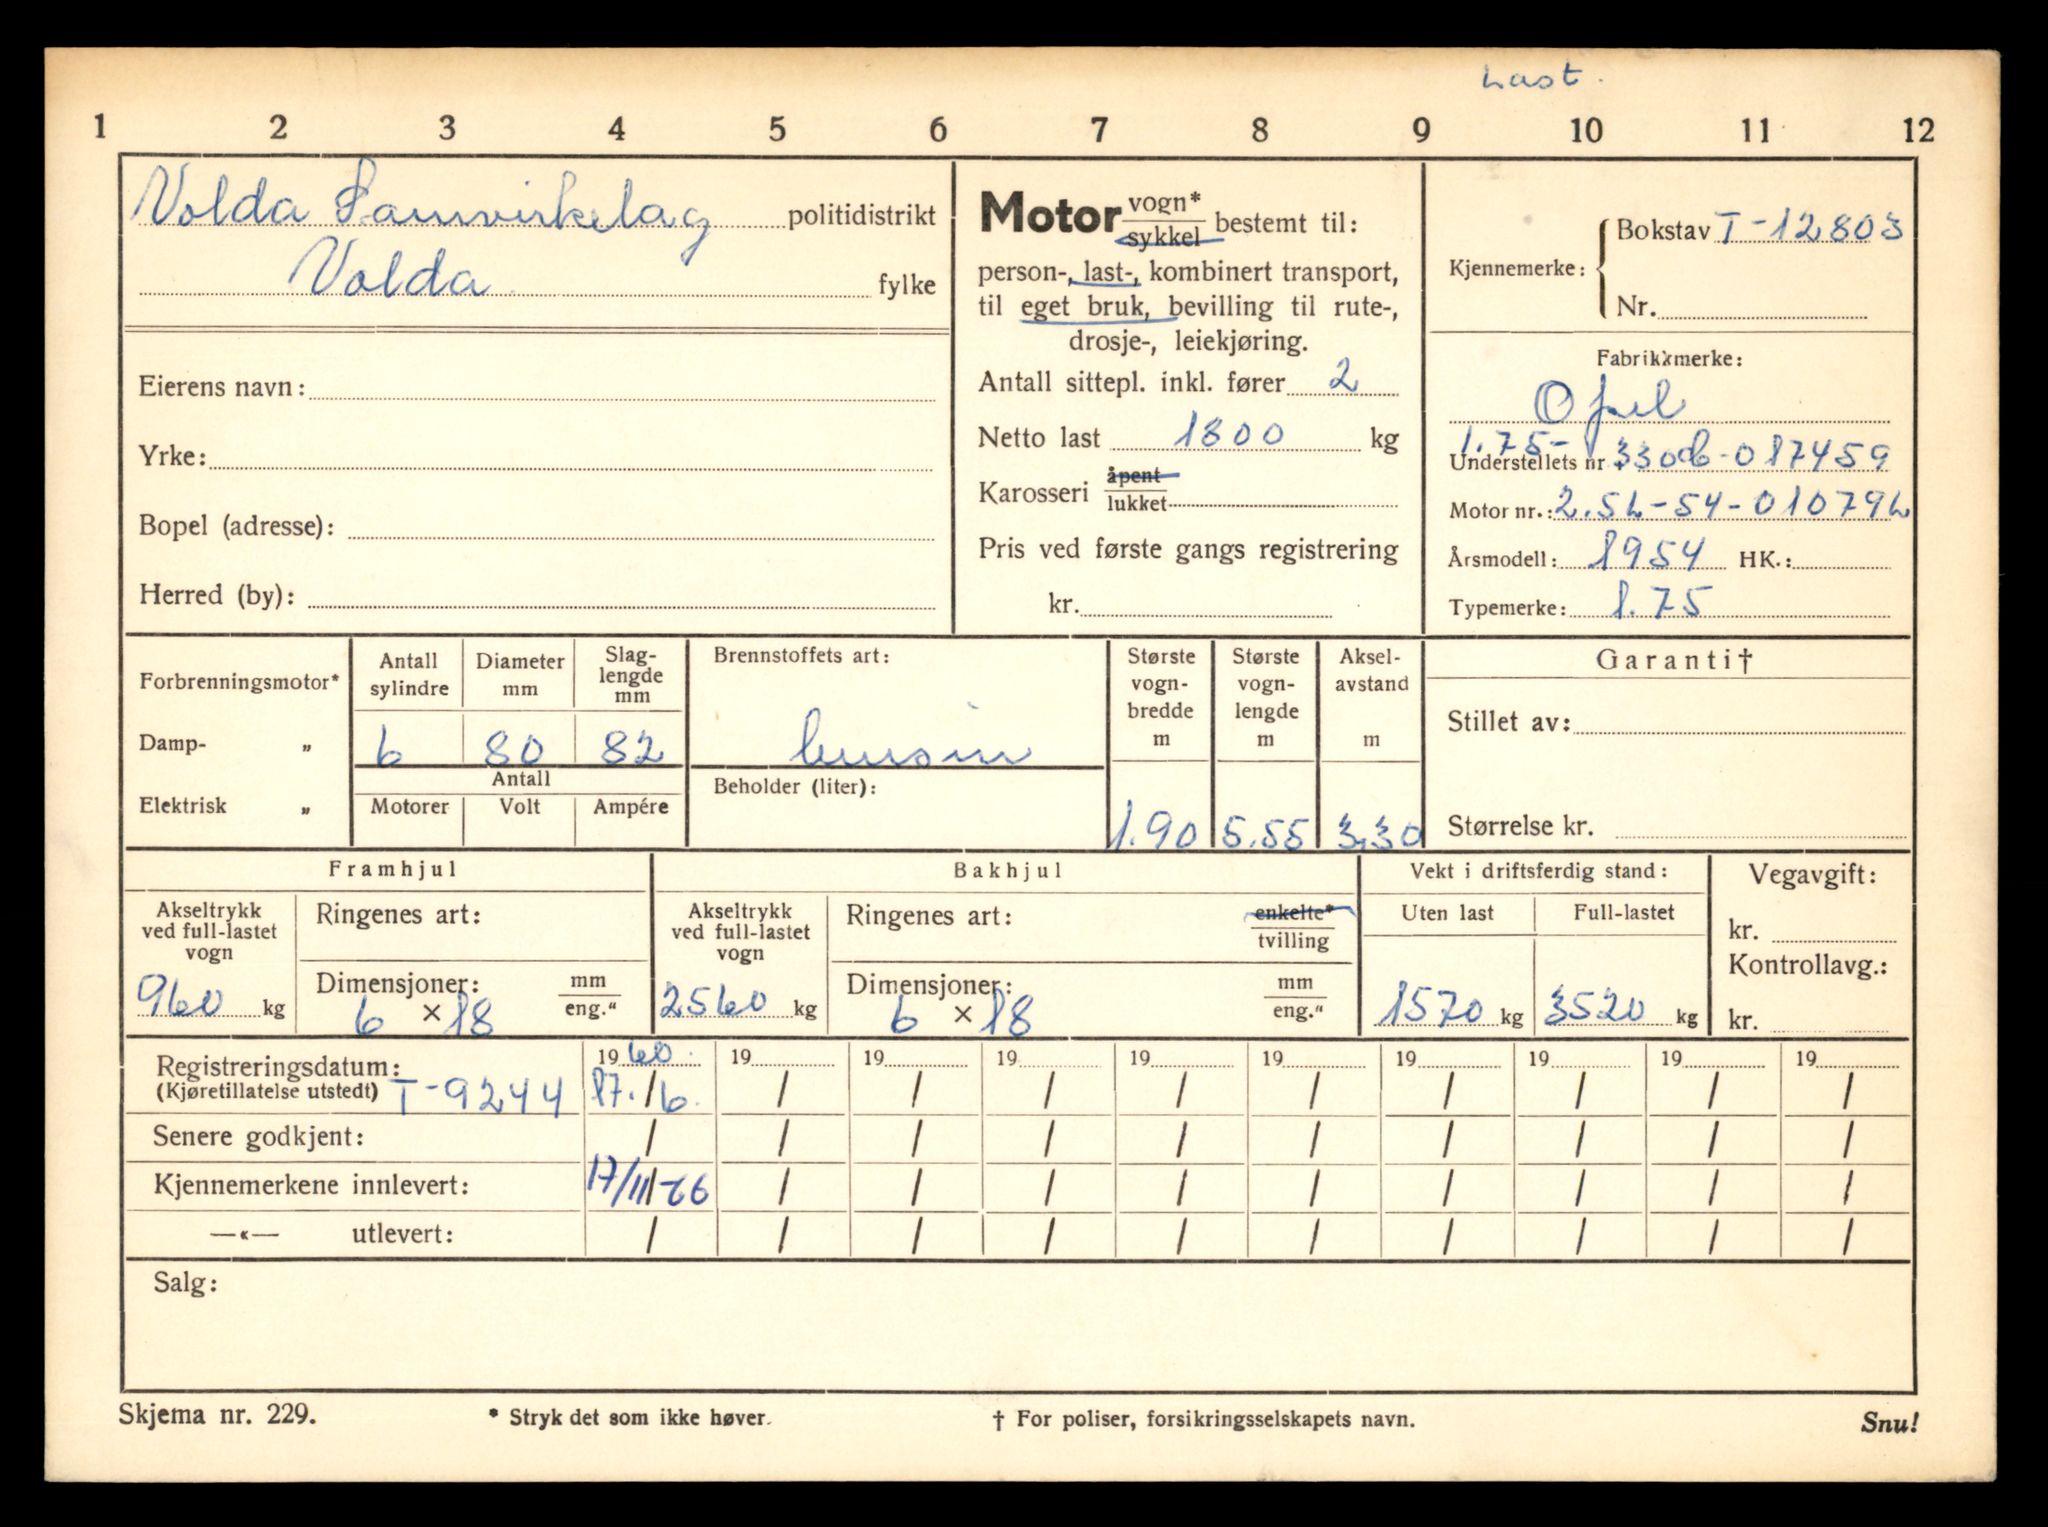 Last.
1 2 3 4 5 6 7 8 9 10 11 12
Volda Samvirkelag politidistrikt
Volda fylke
Eierens navn:
Yrke:
Bopel (adresse):
Herred (by):
Motor vogn* / sykkel bestemt til:
person-, last-, kombinert transport,
til eget bruk, bevilling til rute-,
drosje-, leiekjøring.
Antall sittepl. inkl. fører 2
Netto last 1800 kg
Karosseri åpent / lukket
Pris ved første gangs registrering
kr.
Kjennemerke: Bokstav T-12803
Nr.
Fabrikkmerke:
Opel
1.75-
Understellets nr 330d6-017459
Motor nr.: 2.5L-54-010794
Årsmodell: 1954 HK.:
Typemerke: 1.75
Forbrenningsmotor*
Damp- „
Elektrisk „
Antall sylindre Diameter mm Slag-lengde mm
6 80 82
Antall
Motorer Volt Ampére
Brennstoffets art:
bensin
Beholder (liter):
Største vogn-bredde m Største vogn-lengde m Aksel-avstand m
1.90 5.55 3.30
Garanti†
Stillet av:
Størrelse kr.
Framhjul
Akseltrykk ved full-lastet vogn
960 kg
Ringenes art:
Dimensjoner: mm / eng."
6 × 18
Bakhjul
Akseltrykk ved full-lastet vogn
2560 kg
Ringenes art: enkelte* / tvilling
Dimensjoner: mm / eng."
6 × 18
Vekt i driftsferdig stand:
Uten last Full-lastet
1570 kg 3520 kg
Vegavgift:
kr.
Kontrollavg.:
kr.
Registreringsdatum: 19 60. 19 19 19 19 19 19 19 19 19
(Kjøretillatelse utstedt) T-9244 17./6. / / / / / / / / /
Senere godkjent: / / / / / / / / / /
Kjennemerkene innlevert: 17/11-66 / / / / / / / / /
—«— utlevert: / / / / / / / / / /
Salg:
Skjema nr. 229. * Stryk det som ikke høver. † For poliser, forsikringsselskapets navn. Snu!